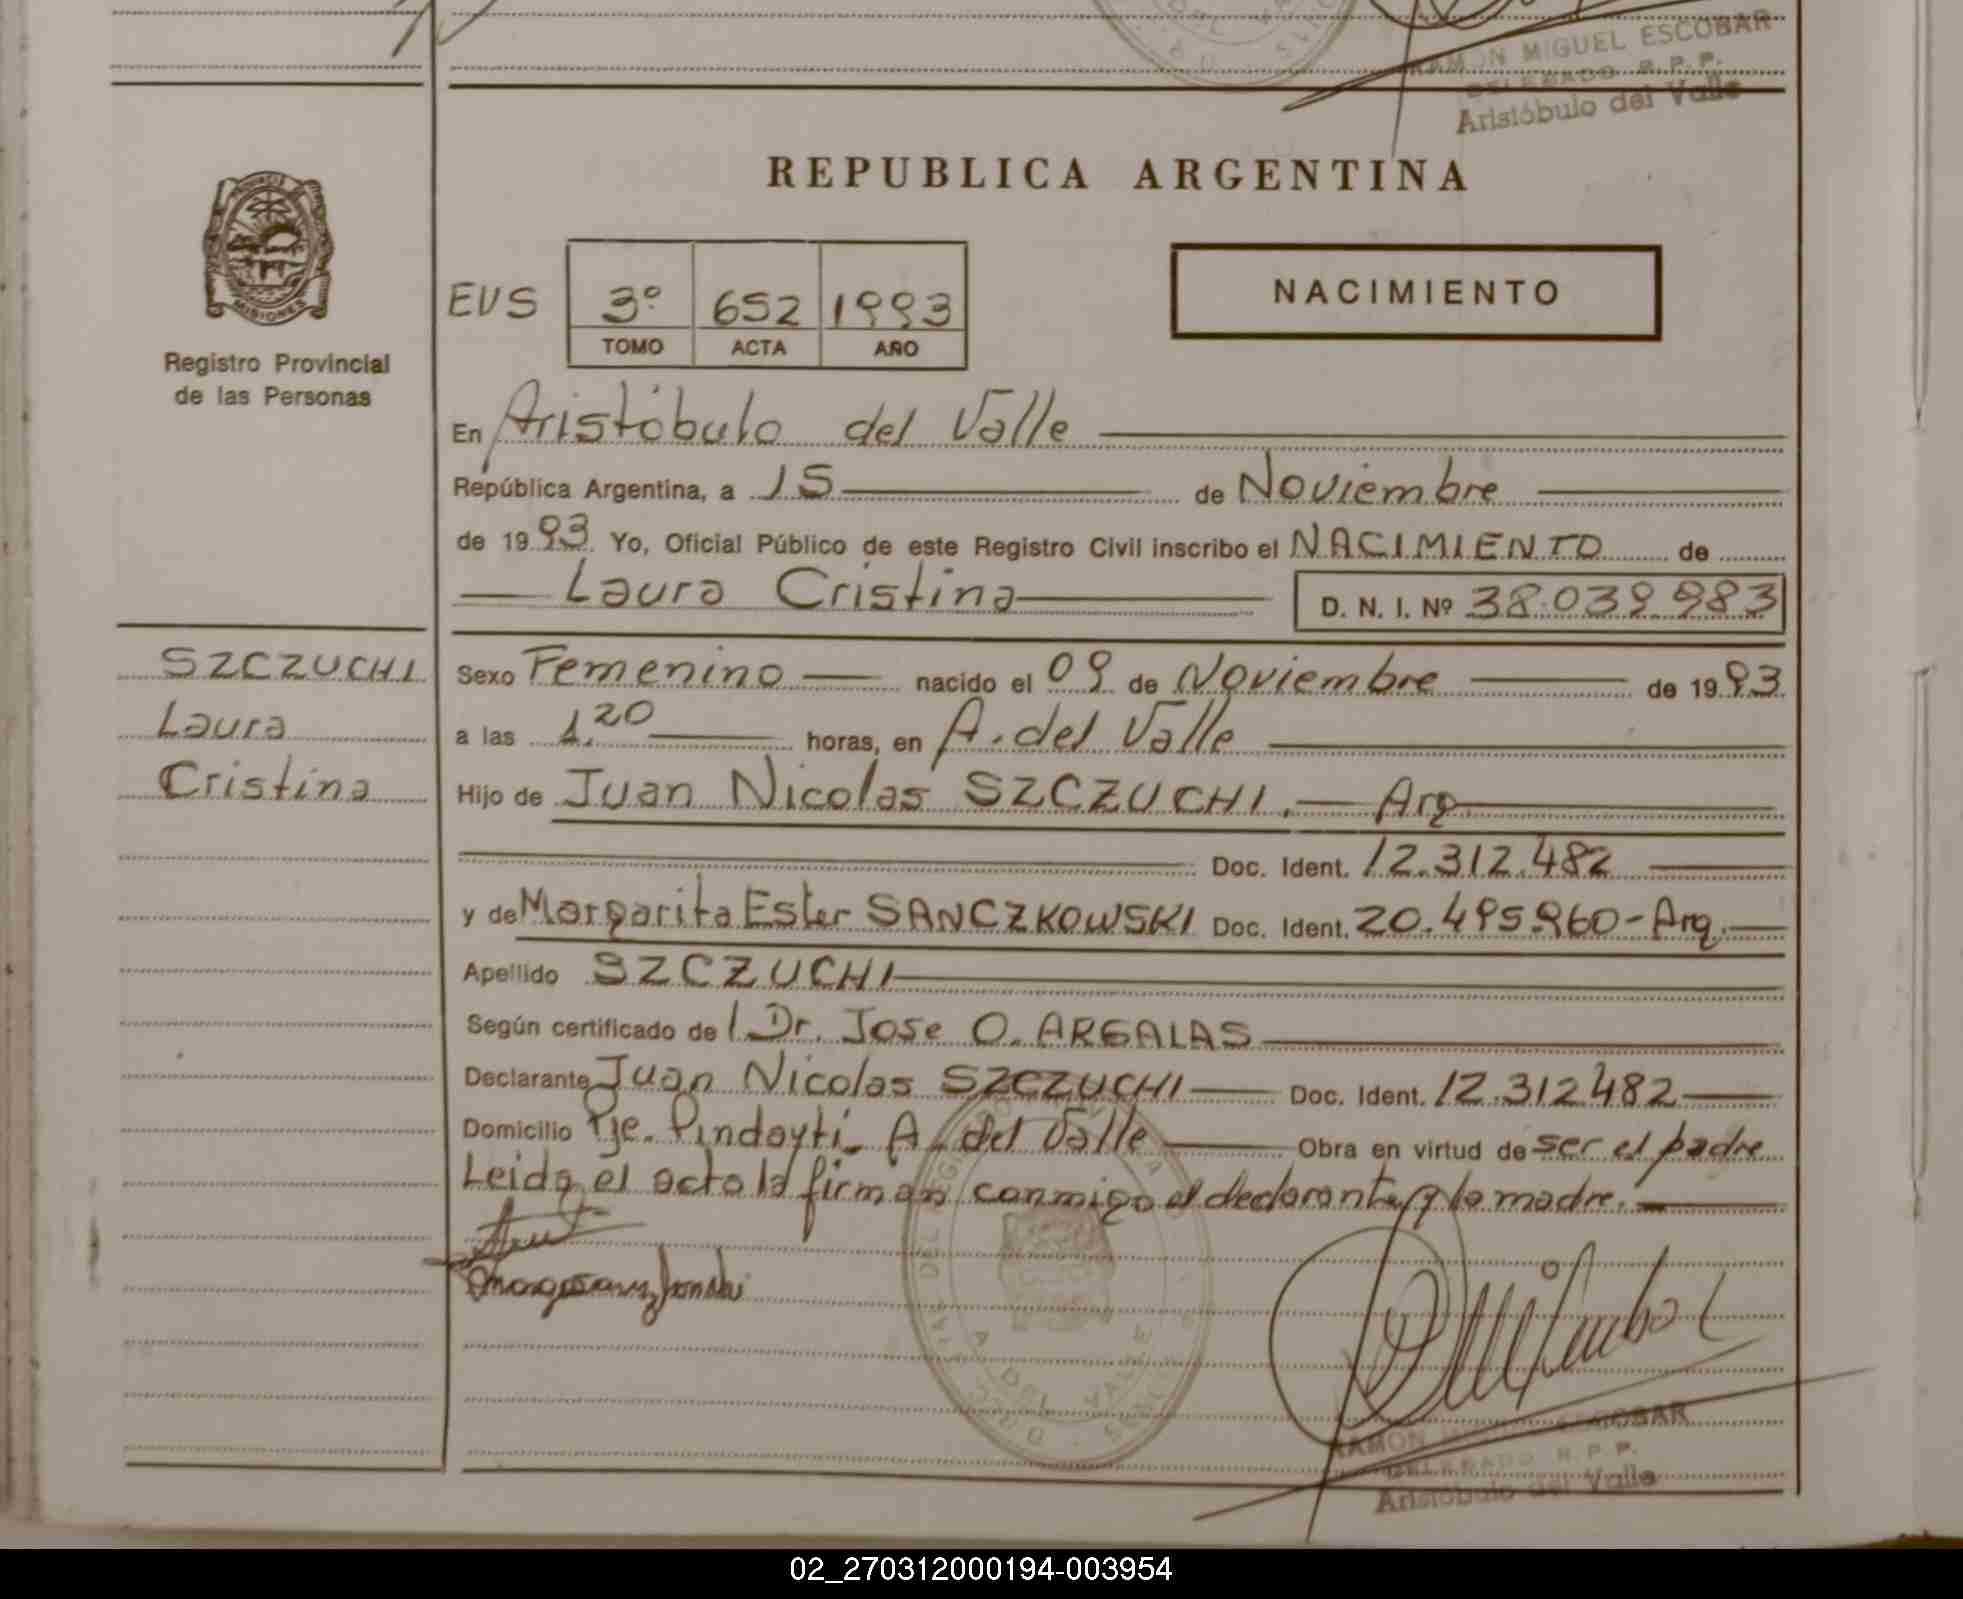 RAMON MIGUEL ESCOBAR
DELEGADO R. P. P.
Aristóbulo del Valle
REPUBLICA ARGENTINA
MISIONES
Registro Provincial
de las Personas
EUS 3º 652 1993
TOMO ACTA AÑO
NACIMIENTO
En Aristóbulo del Valle
República Argentina, a 15 de Noviembre
de 1993 Yo, Oficial Público de este Registro Civil inscribo el NACIMIENTO de
Laura Cristina D. N. I. Nº 38.039.983
SZCZUCHI
Laura
Cristina
Sexo Femenino nacido el 09 de Noviembre de 1993
a las 1,20 horas, en A. del Valle
Hijo de Juan Nicolas SZCZUCHI. Arg
Doc. Ident. 12.312.482
y de Margarita Ester SANCZKOWSKI Doc. Ident. 20.495.960-Arg.
Apellido SZCZUCHI
Según certificado de l Dr. Jose O. ARGALAS
Declarante Juan Nicolas SZCZUCHI Doc. Ident. 12.312482
Domicilio Pje. Pindayti. A. del Valle Obra en virtud de ser el padre
Leida el acta la firman conmigo el declarante y la madre.
RAMON MIGUEL ESCOBAR
DELEGADO R. P. P.
Aristóbulo del Valle
02_270312000194-003954